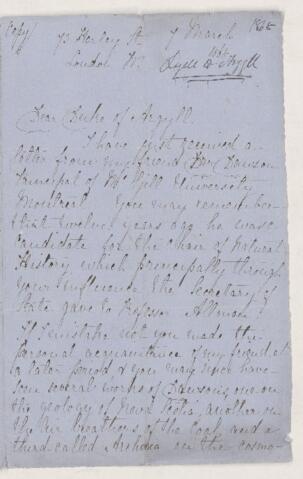 (Copy)
73 Harley St 7 March 1868
London W.
Lyell to Argyll
Dear Duke of Argyll.
I have just received a
letter from my friend Dr Dawson
Principal of McGill University
Montreal You may remember
that twelve years ago he was
candidate for the chair of Natural
History which principally through
your influence the Secretary of
State gave to Professor Allman
If I mistake not you made the
personal acquaintance of my friend at
a later period & you may since have
seen several works of Dawson's one on
the geology of Nova Scotia, another on
the Air breathers of the Coal, and a
third called Archaia on the cosmo-